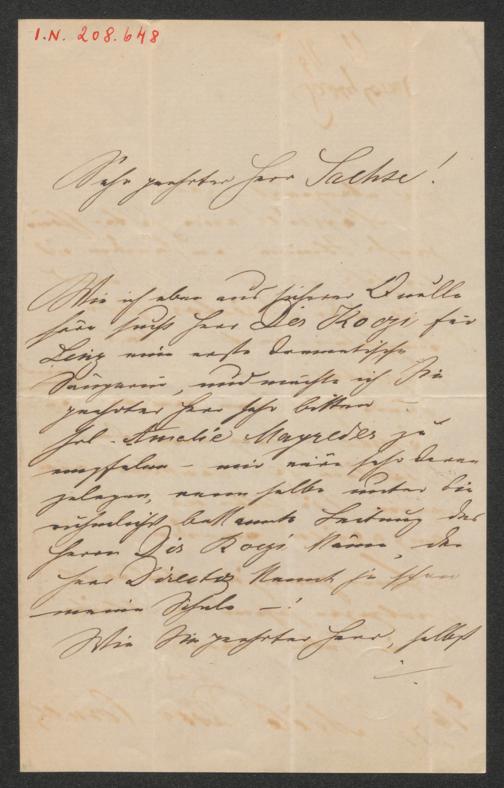 I.N. 208.648
Sehr geehrter Herr Sachse!
Wie ich eben aus sicherer Quelle
höre sucht Herr Dir Kotzi für
Linz eine erste dramatische
Sängerin, und möchte ich Sie
geehrter Herr sehr bitten
Frl. Amelie Mayreder zu
empfelen – mir wäre sehr daran
gelegen, wenn selbe unter die
rühmlichst bekannte Leitung des
Herrn Dir Kotzi käme, der
Herr Director kennt ja schon
meine Schule –!
Wie Sie geehrter Herr, selbst